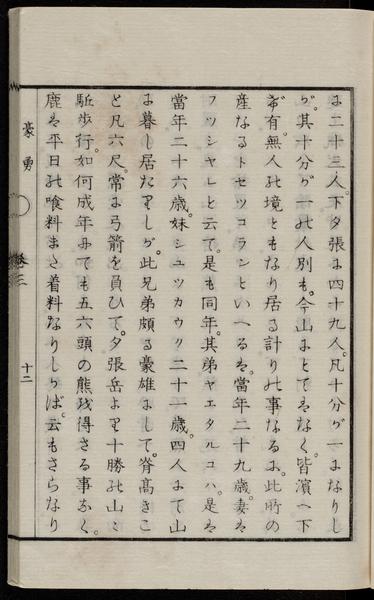 に二十三人。下夕張に四十九人。凡十分が一になりし
が。其十分が一の人別も。今山にとてはなく。皆濱へ下
ゲ有。無人の境ともなり居る計りの事なるに。此所の
産なるトセツコランといへるは。當年二十九歳。妻は
フツシヤレと云て。是も同年。其弟ヤエタルコハ。是は
當年二十六歳。妹シユツカウク二十一歳。四人にて山
に暮し居たりしが。此兄弟頗る豪雄にして。脊高きこ
と凡六尺。常に弓箭を負ひて。夕張岳より十勝の山に
駈歩行。如何成年にても五六頭の熊を得さる事なく。
鹿は平日の喰料また着料なりしかば。云もさらなり
豪勇
十二